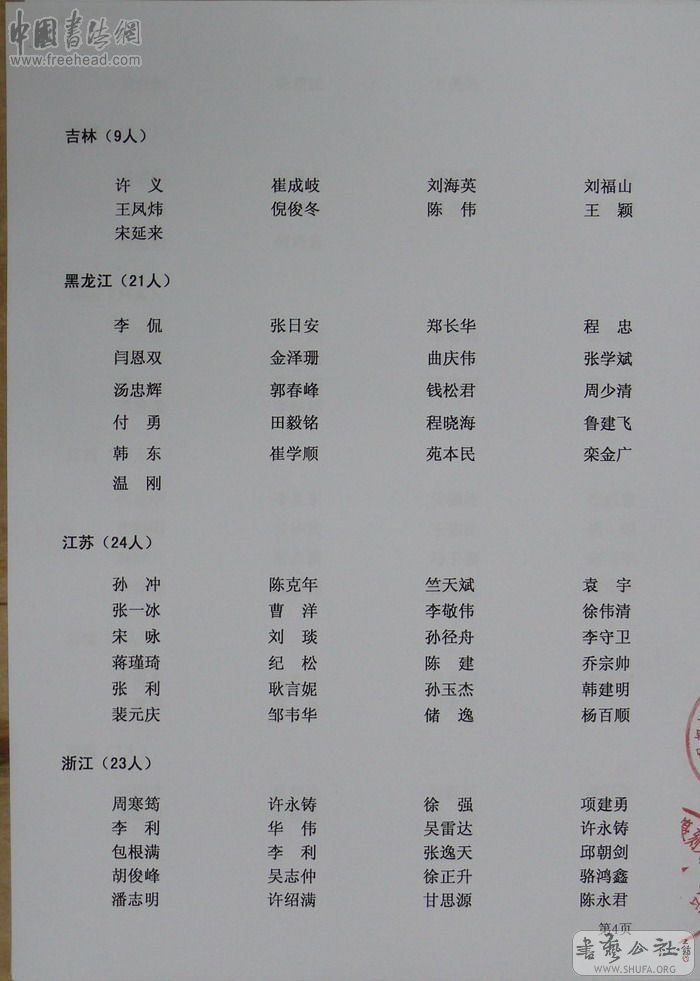 中国书法網
www.freehead.com
吉林（9人）
许 义 崔成岐 刘海英 刘福山
王凤炜 倪俊冬 陈 伟 王 颖
宋延来
黑龙江（21人）
李 侃 张日安 郑长华 程 忠
闫恩双 金泽珊 曲庆伟 张学斌
汤忠辉 郭春峰 钱松君 周少清
付 勇 田毅铭 程晓海 鲁建飞
韩 东 崔学顺 苑本民 栾金广
温 刚
江苏（24人）
孙 冲 陈克年 竺天斌 袁 宇
张一冰 曹 洋 李敬伟 徐伟清
宋 咏 刘 琰 孙径舟 李守卫
蒋瑾琦 纪 松 陈 建 乔宗帅
张 利 耿言妮 孙玉杰 韩建明
裴元庆 邹韦华 储 逸 杨百顺
浙江（23人）
周寒筠 许永铸 徐 强 项建勇
李 利 华 伟 吴雷达 许永铸
包根满 李 利 张逸天 邱朝剑
胡俊峰 吴志仲 徐正升 骆鸿鑫
潘志明 许绍满 甘思源 陈永君
第4页
書藝公社
WWW.SHUFA.ORG